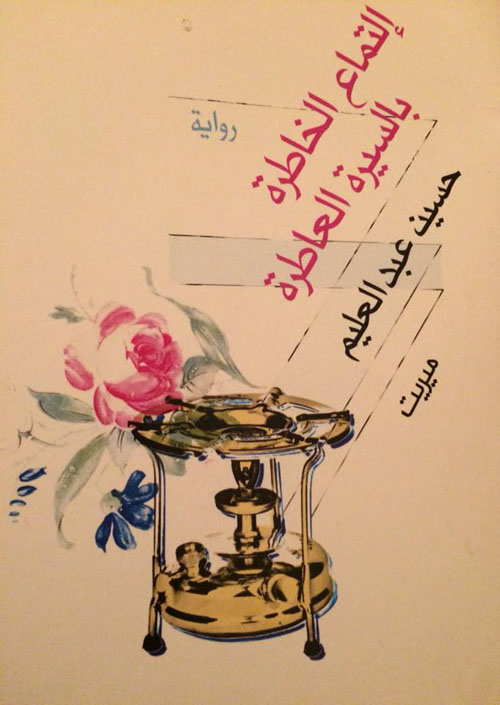 إلتماع الخاطرة
بالسيرة العاطرة
رواية
حسين عبد العليم
ميريت